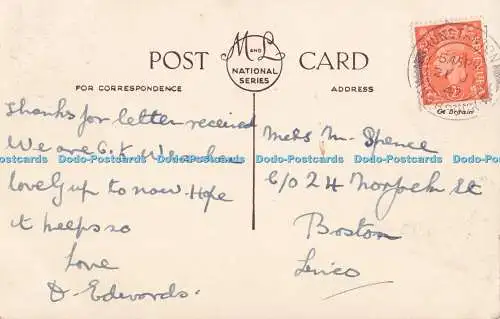 POST CARD
M AND L
NATIONAL
SERIES
FOR CORRESPONDENCE
ADDRESS
Thanks for letter received
We are O.K.
lovely up to now Hope
it keeps so
Love
D. Edwards.
Spence
C/o 24 Norfolk St
Boston
Lincs
Gt Britain
Dodo-Postcards Dodo-Postcards Dodo-Postcards Dodo-Postcards Dodo-Postcards Dodo-Postcards